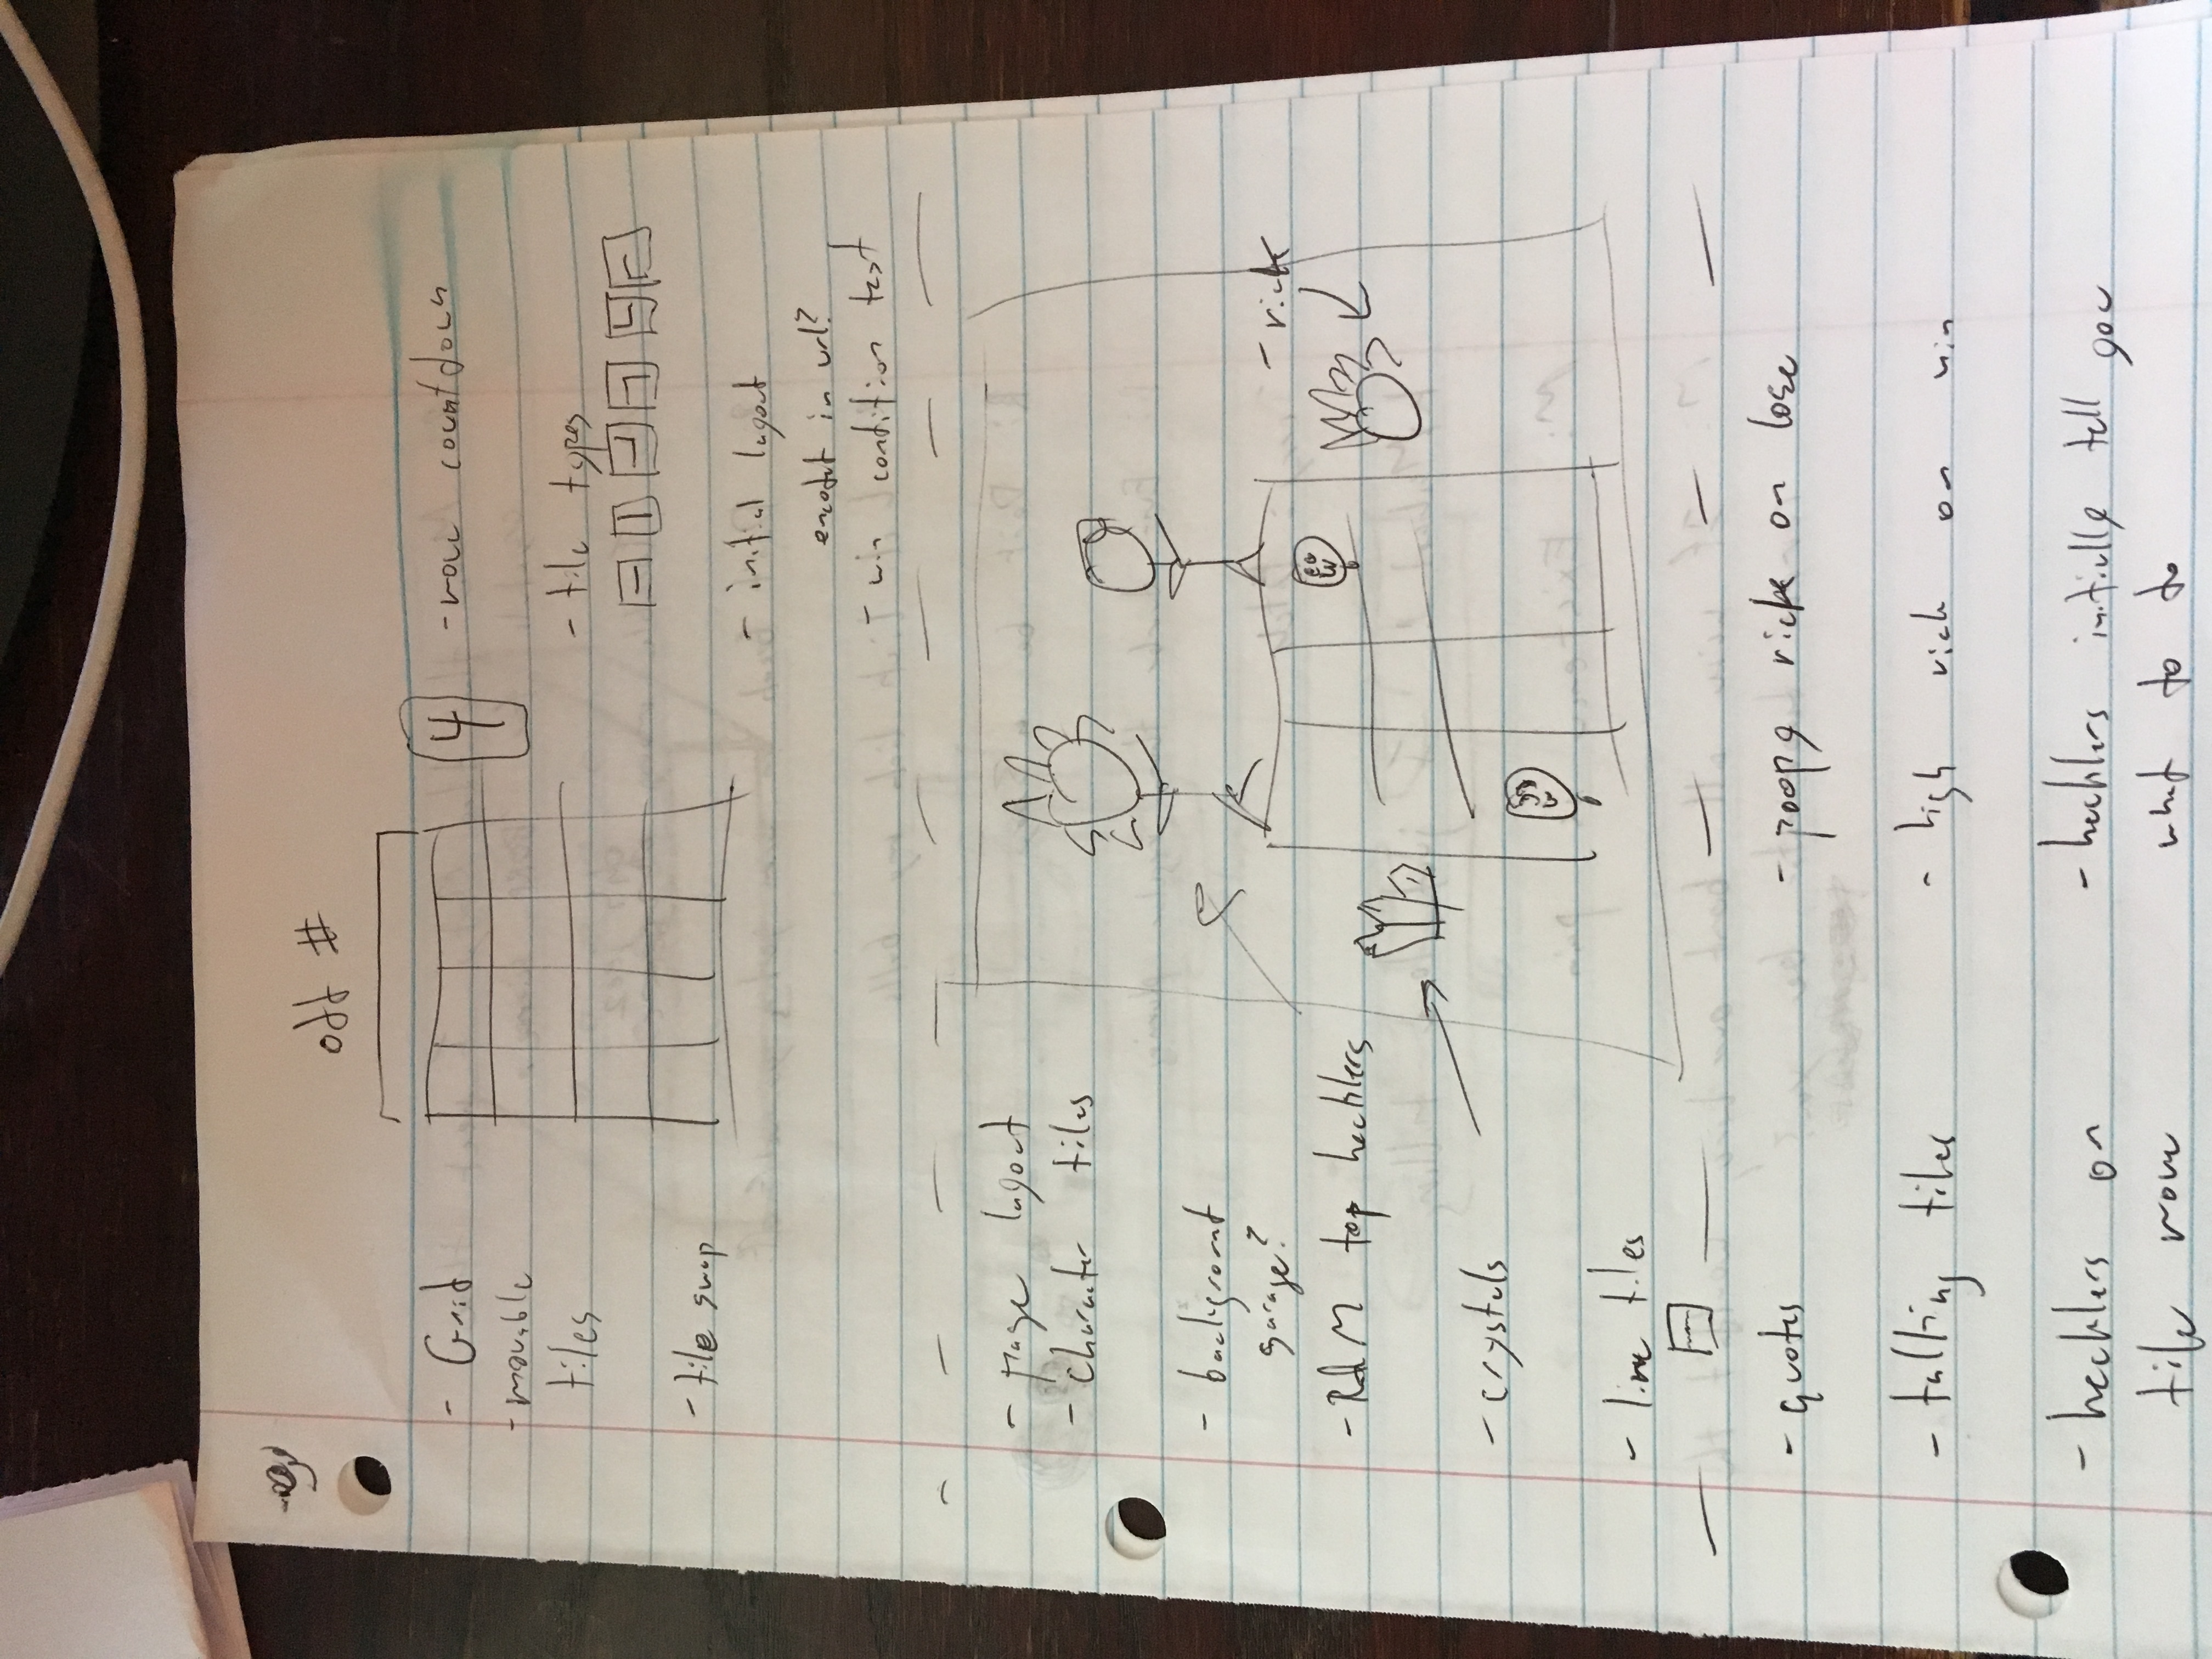 odd #
- Grid
4
- move countdown
- movable
tiles
- tile types
- tile swap
- initial layout
encoded in url?
- win condition test
- page layout
- character tiles
- background
garage?
- rick
- R&M top hecklers
- crystals
- line tiles
- quotes
- poopy rick on lose
- talking tiles
- high rick on win
- hecklers on
tile move
- hecklers initially tell you
what to do